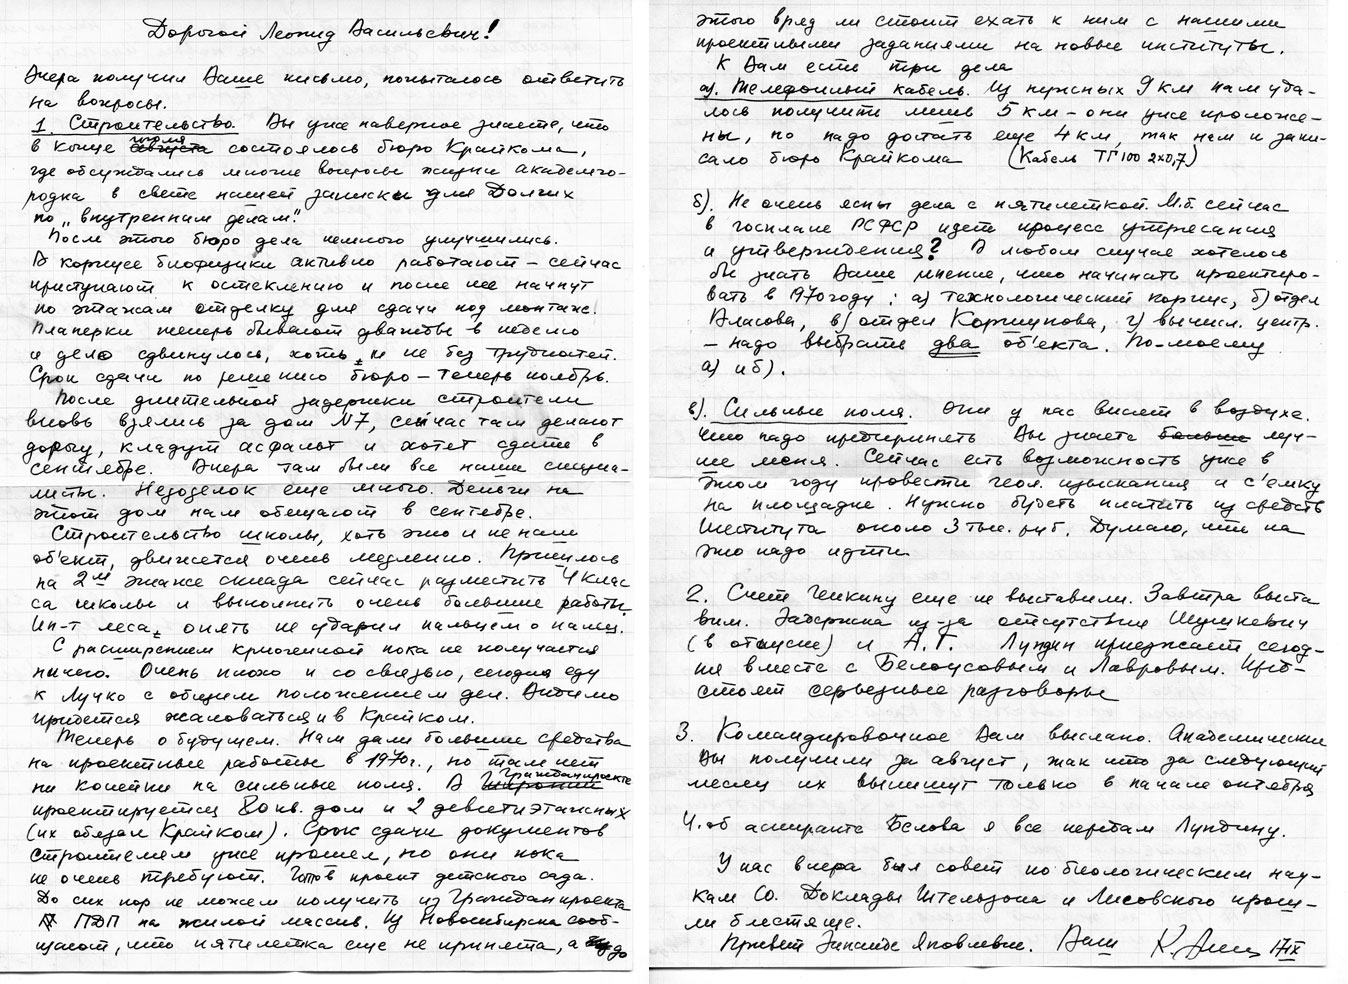 Дорогой Леонид Васильевич!
Вчера получил Ваше письмо, попытаюсь ответить
на вопросы.
1. Строительство. Вы уже наверное знаете, что
в конце июля августа состоялось бюро Крайкома,
где обсуждались многие вопросы жизни академго-
родка в свете нашей записки для Долгих
по „внутренним делам".
После этого бюро дела немного улучшились.
В корпусе биофизики активно работают – сейчас
приступают к остеклению и после нее начнут
по этажам отделку для сдачи под монтаж.
Планерки теперь бывают дважды в неделю
и дело сдвинулось, хоть и не без трудностей.
Срок сдачи по решению бюро – теперь ноябрь.
После длительной задержки строители
вновь взялись за дом N7, сейчас там делают
дорогу, кладут асфальт и хотят сдать в
сентябре. Вчера там были все наши специа-
листы. Недоделок еще много. Деньги на
этот дом нам обещают в сентябре.
Строительство школы, хоть это и не наш
об'ект, движется очень медленно. Пришлось
на 2м этаже склада сейчас разместить 4 клас
са школы и выполнить очень большие работы.
Ин-т леса, опять не ударил пальцем о палец.
С расширением криогенной пока не получается
ничего. Очень плохо и со связью, сегодня еду
к Лучко с общим положением дел. Видимо
придется жаловаться и в Крайком.
Теперь о будущем. Нам дали большие средства
на проектные работы в 1970г., но там нет
ни копейки на сильные поля. В Гражданпроекте
проектируется 80 кв. дом и 2 девятиэтажных
(их обязал Крайком). Срок сдачи документов
строителям уже прошел, но они пока
не очень требуют. Готов проект детского сада.
До сих пор не можем получить из Гражданпроекта
ПДП на жилой массив. Из Новосибирска сооб-
щают, что пятилетка еще не принята, а до
этого вряд ли стоит ехать к ним с нашими
проектными заданиями на новые институты.
К Вам есть три дела
а). Телефонный кабель. Из нужных 9 км нам уда-
лось получить лишь 5 км – они уже проложе-
ны, но надо достать еще 4 км, так нам и запи-
сало бюро Крайкома (Кабель ТГ 100 2х0,7)
б). Не очень ясны дела с пятилеткой. М.б. сейчас
в госплане РСФСР идет процесс утрясания
и утверждения? В любом случае хотелось
бы знать Ваше мнение, что начинать проектиро-
вать в 1970 году: а) технологический корпус, б) отдел
Власова, в) отдел Коршунова, г) вычисл. центр.
– надо выбрать два об'екта. По-моему
а) и б).
в). Сильные поля. Они у нас висят в воздухе.
Что надо предпринять Вы знаете больше луч-
ше меня. Сейчас есть возможность уже в
этом году провести геол. изыскания и с'емку
на площадке. Нужно будет платить из средств
Института около 3 тыс. руб. Думаю, что на
это надо идти.
2. Счет Генкину еще не выставили. Завтра выста
вим. Задержка из-за отсутствия Шушкевич
(в отпуске) и А.Г. Лундин приезжает сегод-
ня вместе с Белоусовым и Лавровым. Пред-
стоят серьезные разговоры
3. Командировочное Вам выслано. Академические
Вы получили за август, так что за следующий
месяц их вышлют только в начале октября
4. Об аспиранте Белова я все передам Лундину.
У нас вчера был совет по биологическим нау-
кам СО. Доклады Штельзона и Лисовского прош-
ли блестяще.
Привет Зинаиде Яковлевне. Ваш 17 IX